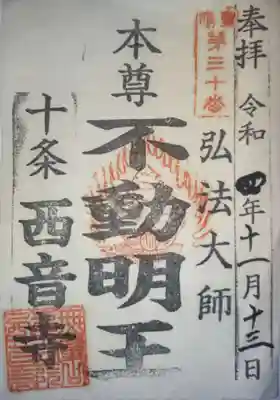 奉拝 令和四年十一月十三日
第三十番
弘法大師
本尊
不動明王
十条
西音寺